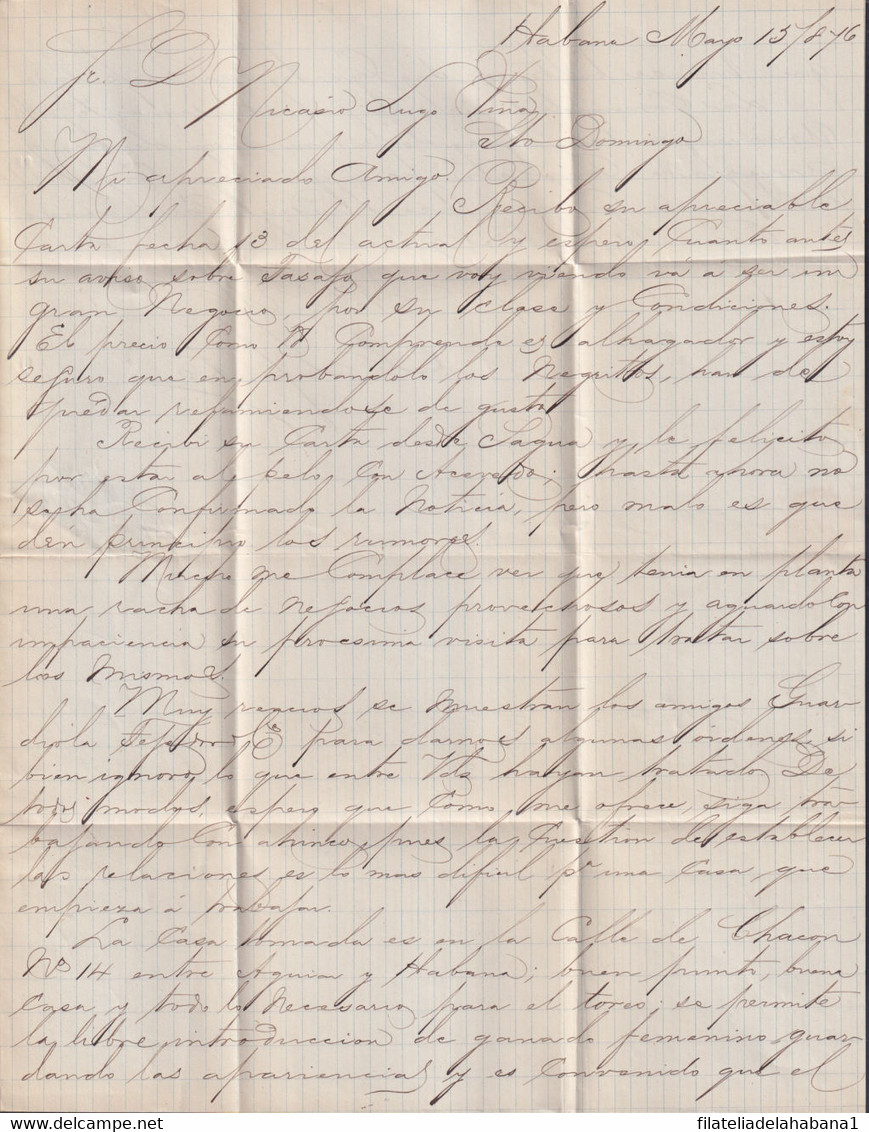 Habana Mayo 15/876
Sr. D
Nicasio Lugo Viña
Sto Domingo
Mi apreciado Amigo. Recibo su apreciable
Carta fecha 13 del actual y espero Cuanto antes
su aviso sobre Tasajo que voy viendo vá á ser un
gran Negocio, por su clase y Condiciones.
El precio Como V. Comprende es alhagador y estoy
seguro que en probandolo los Negritos, han de
quedar de gusto
Recibi su Carta desde Sagua y le felicito
por estar al pelo Con Acevedo; hasta ahora no
se ha Confirmado la Noticia, pero malo es que
dén principio los rumores.
Mucho me Complace ver que tenia en planta
una racha de Negocios provechosos y aguardo Con
impaciencia su procsima visita para tratar sobre
los Mismos.
Muy reacios se muestran los amigos Guar-
diola para darnos algunas órdenes, si
bien ignoro lo que entre Vds hayan tratado De
todos modos, espero que Como me ofrece, siga tra-
bajando Con ahinco, pues la Cuestion de establecer
las relaciones es lo mas dificil pa una Casa que
empieza á trabajar.
La Casa tomada es en la Calle de Chacon
No 14 entre Aguiar y Habana; buen punto, buena
Casa y todo lo Necesario para el toreo; se permite
la libre introduccion de ganado femenino guar-
dando las apariencias y es Convenido que el
filateliadelahabana1
www.delcampe.net